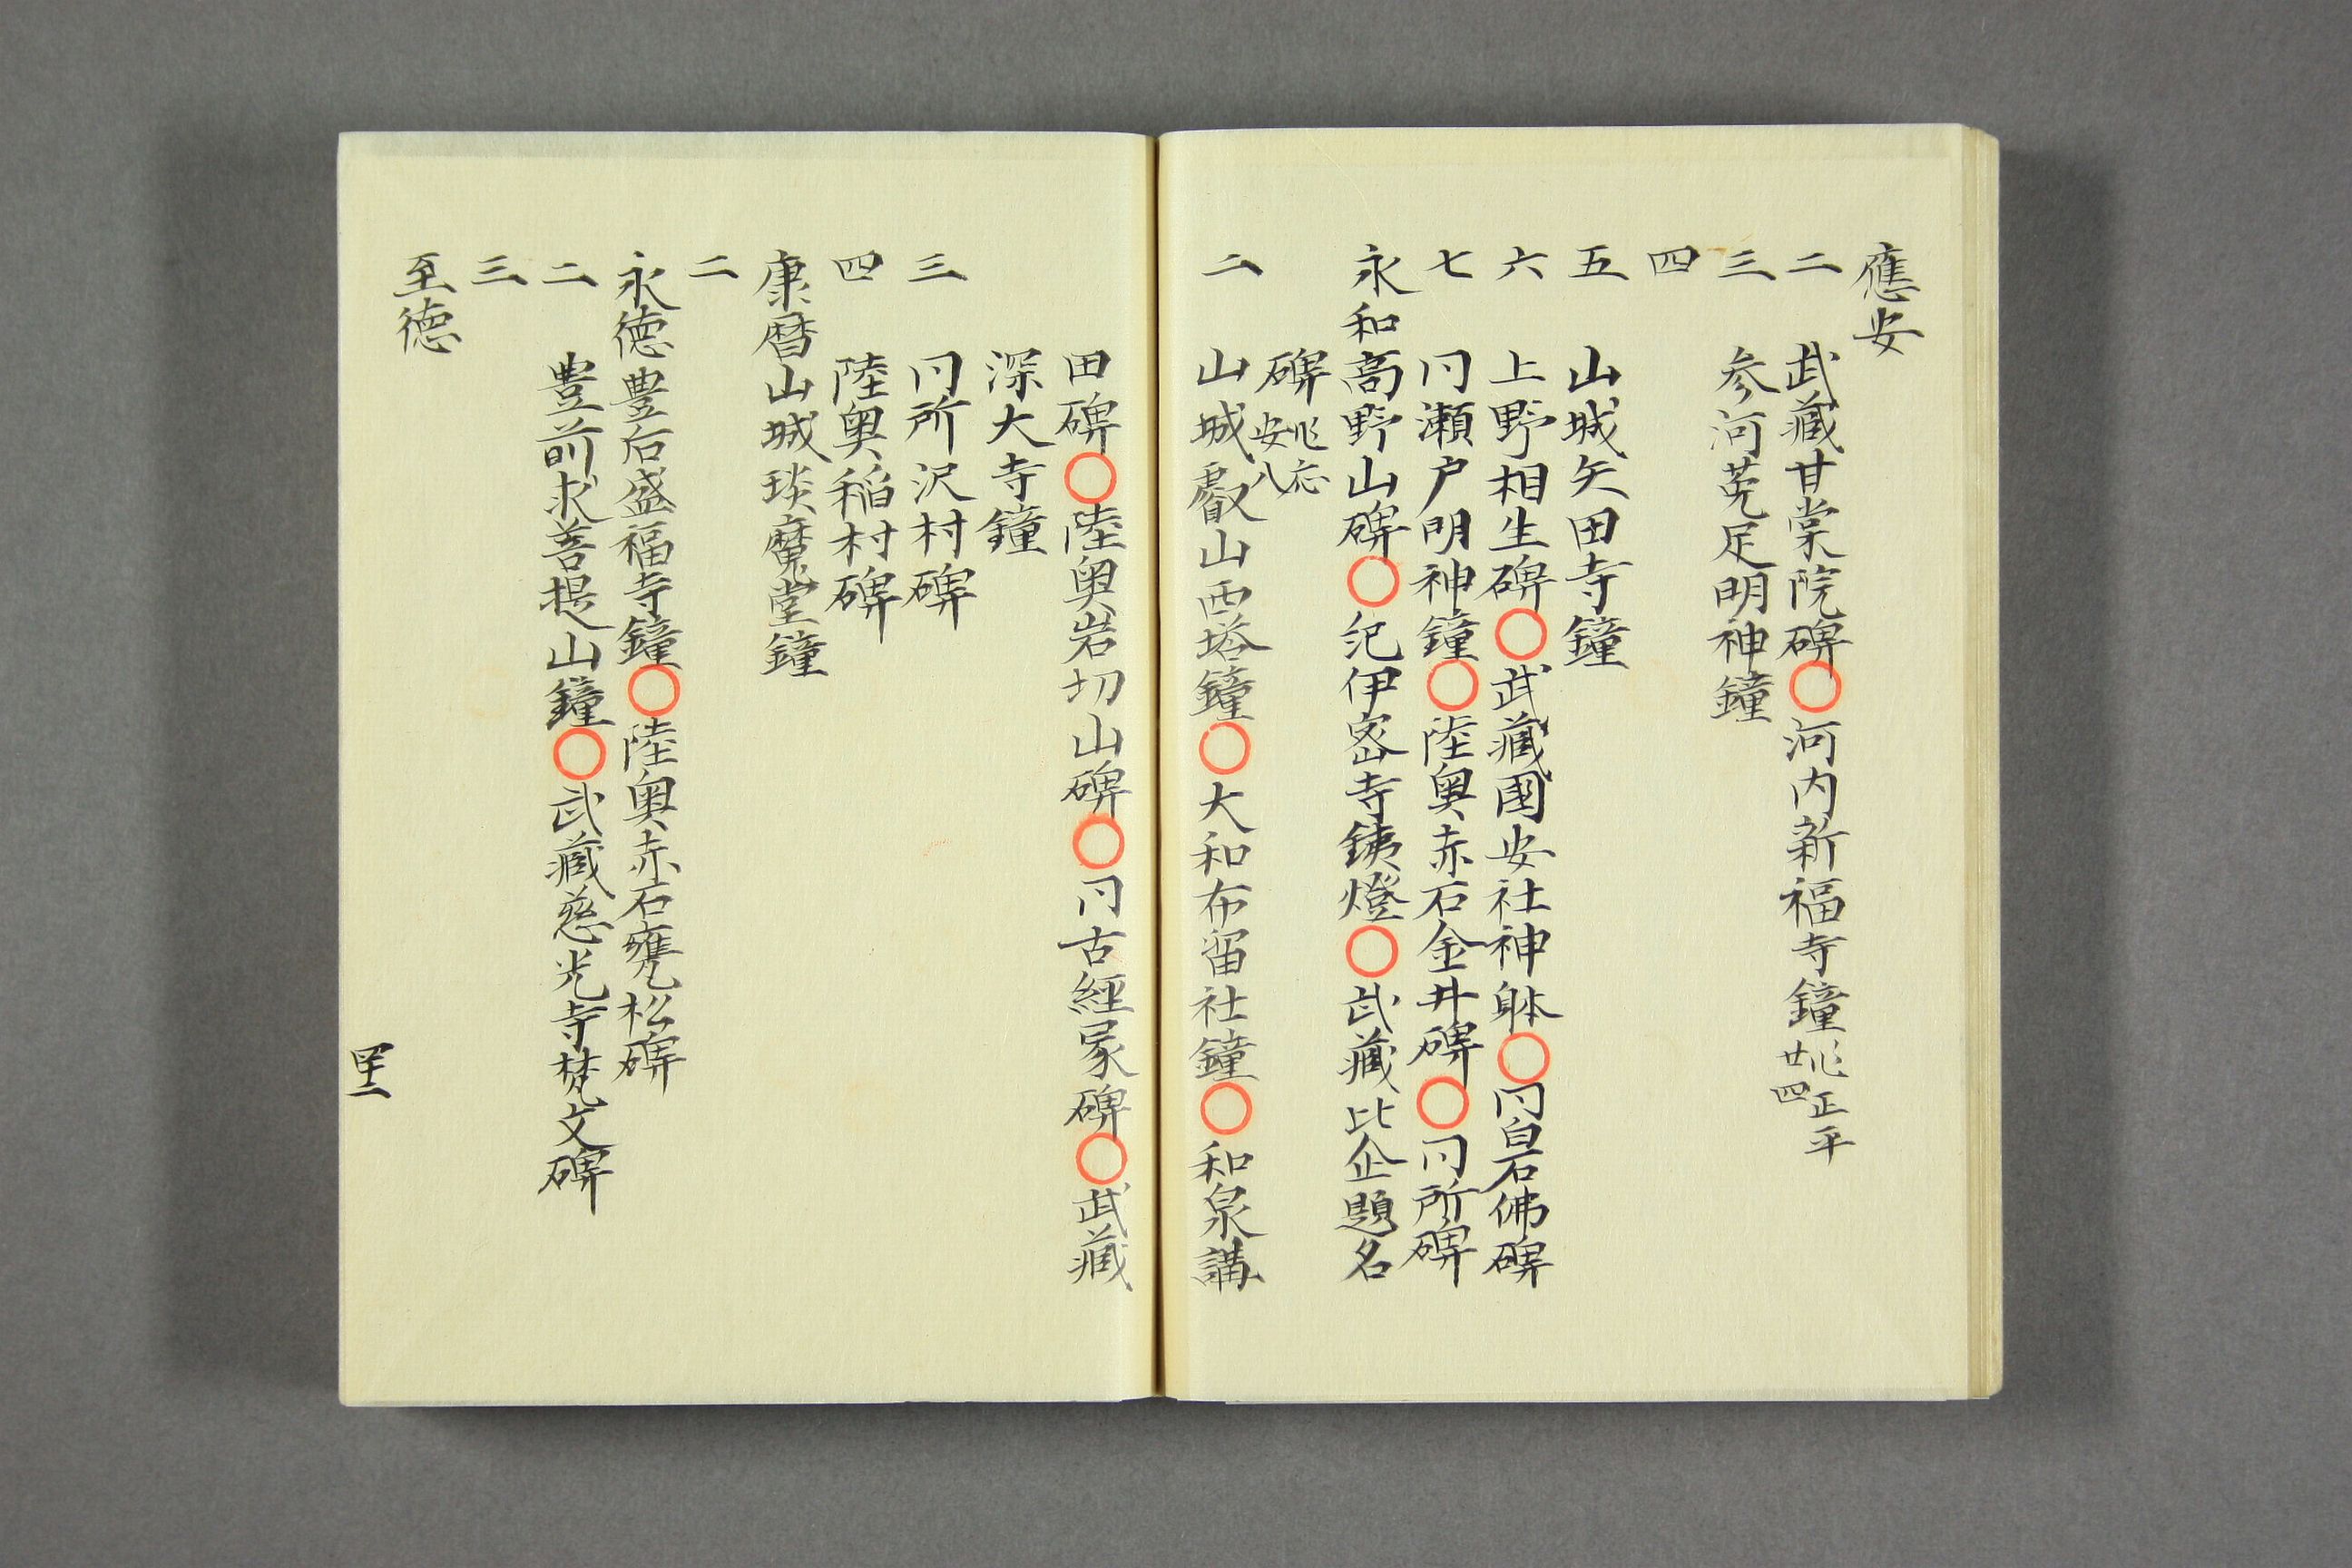 應安
二 武藏甘棠院碑○河内新福寺鐘 正平廿四
三 参河莵足明神鐘
四
五 山城矢田寺鐘
六 上野相生碑○武藏國安社神躰○冋白岩佛碑
七 冋瀬户明神鐘○陸奥赤石金井碑○冋所碑
永和高野山碑○紀伊密寺銕燈○武藏比企題名
碑 応安八
二 山城叡山西塔鐘○大和布留社鐘○和泉講
田碑○陸奥岩切山碑○冋古經冢碑○武藏
深大寺鐘
三 冋所沢村碑
四 陸奥稲村碑
康暦山城琰魔堂鐘
二
永徳豊后盛福寺鐘○陸奥赤石甕松碑
二 豊前求菩提山鐘○武藏慈光寺梵文碑
三
至徳
四十二